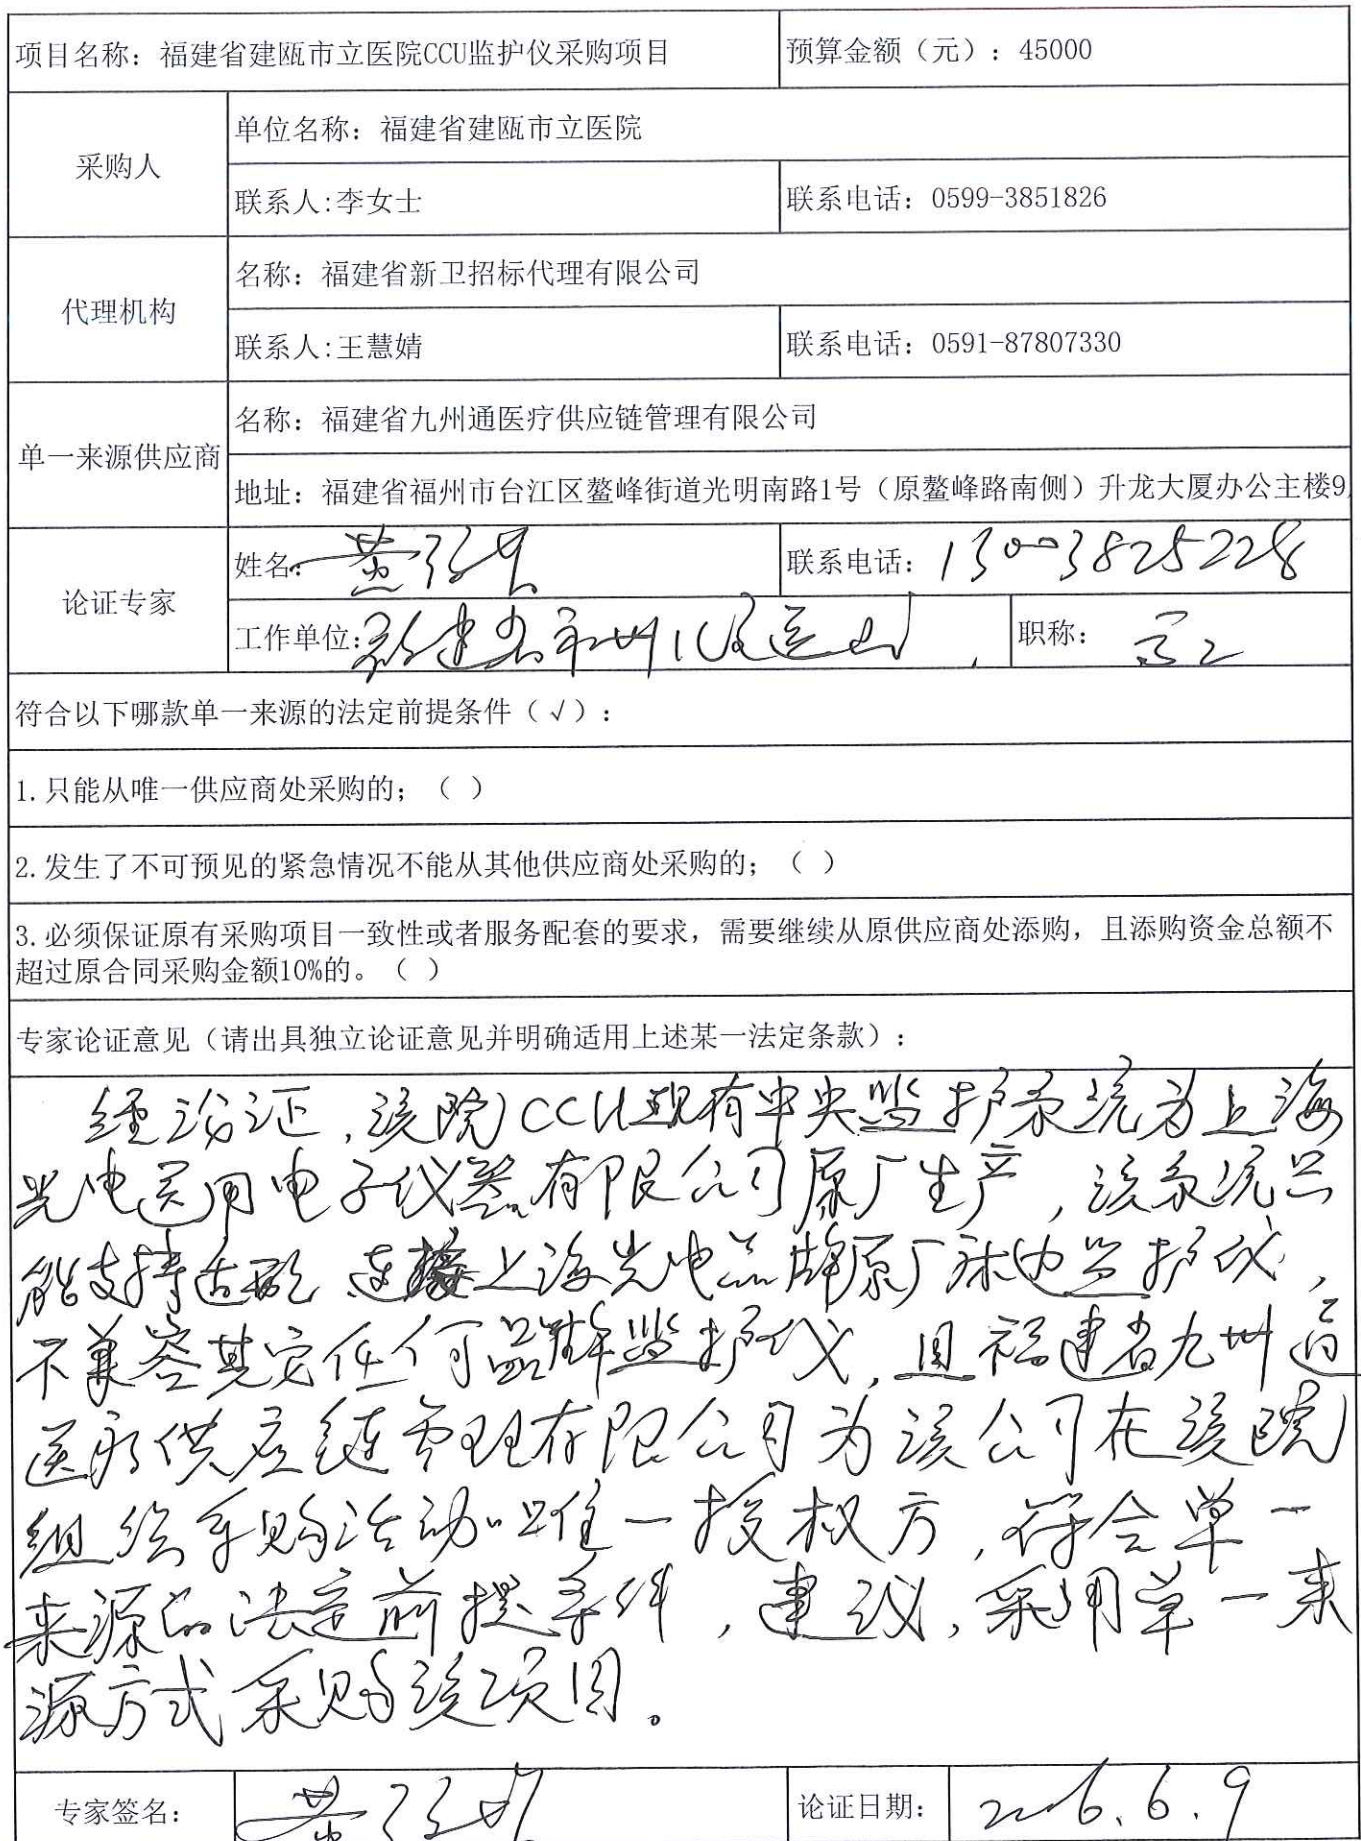 项目名称：福建省建瓯市立医院CCU监护仪采购项目 预算金额（元）：45000
采购人 单位名称：福建省建瓯市立医院
联系人:李女士 联系电话：0599-3851826
代理机构 名称：福建省新卫招标代理有限公司
联系人:王慧婧 联系电话：0591-87807330
单一来源供应商 名称：福建省九州通医疗供应链管理有限公司
地址：福建省福州市台江区鳌峰街道光明南路1号（原鳌峰路南侧）升龙大厦办公主楼9
论证专家 姓名：黄 联系电话：13003825228
工作单位：福建省 职称：高工
符合以下哪款单一来源的法定前提条件（√）：
1.只能从唯一供应商处采购的；（ ）
2.发生了不可预见的紧急情况不能从其他供应商处采购的；（ ）
3.必须保证原有采购项目一致性或者服务配套的要求，需要继续从原供应商处添购，且添购资金总额不
超过原合同采购金额10%的。（ ）
专家论证意见（请出具独立论证意见并明确适用上述某一法定条款）：
经论证，该院CCU现有中央监护系统为上海
光电医用电子仪器有限公司原厂生产，该系统只
能支持 连接上海光电品牌原厂床边监护仪，
不兼容其它任何品牌监护仪，且福建省九州通
医疗供应链管理有限公司为该公司在该院
组织采购活动唯一授权方，符合单一
来源的法定前提条件，建议，采用单一来
源方式采购该项目。
专家签名：黄 论证日期：2026.6.9